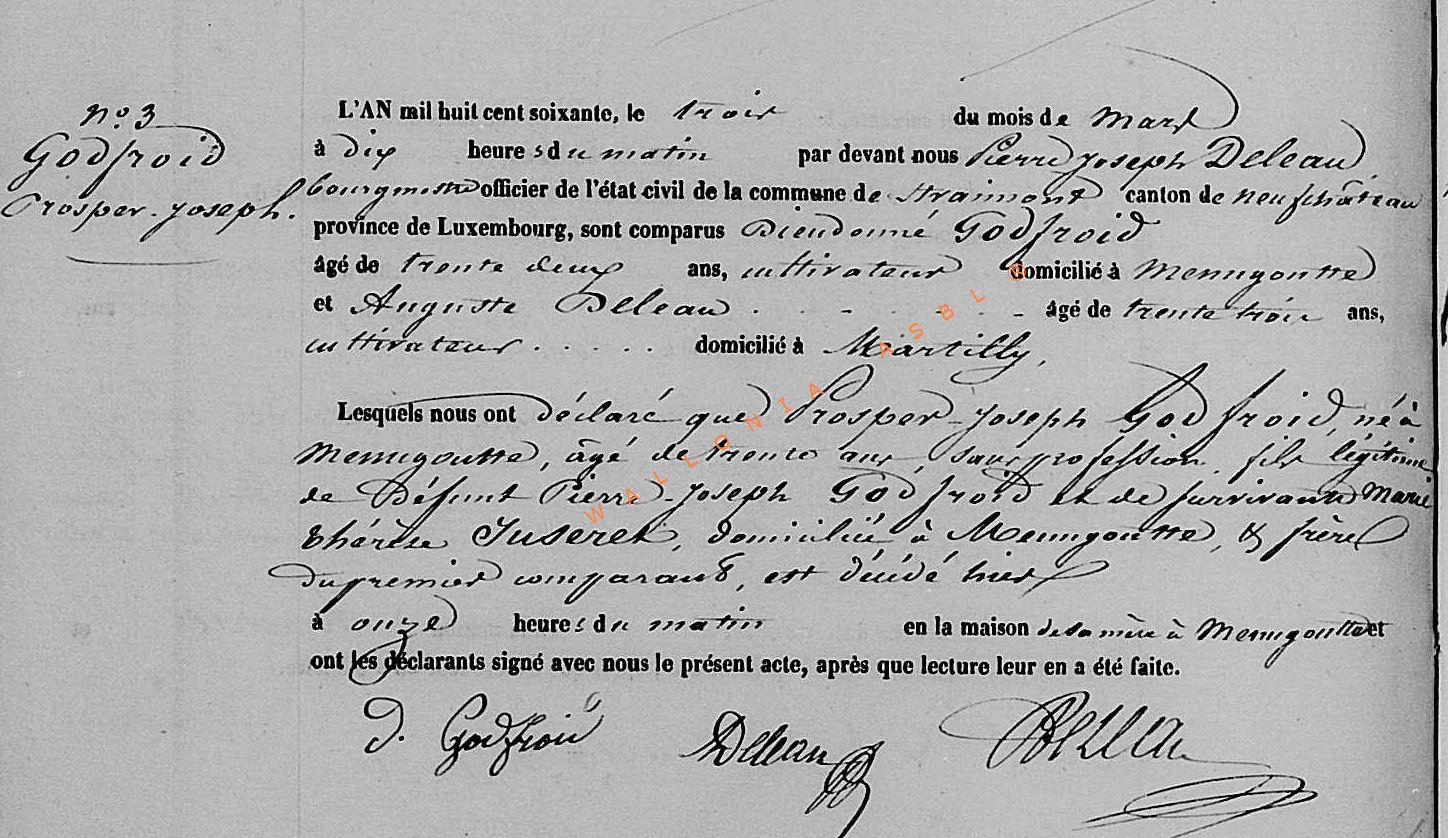 n.o 3
Godfroid
Prosper-Joseph.
L'AN mil huit cent soixante, le trois du mois de Mars
à dix heures du matin par devant nous Pierre Joseph Deleau,
bourgmestre officier de l'état civil de la commune de Straimont canton de neufchâteau
province de Luxembourg, sont comparus Dieudonné Godfroid
âgé de trente deux ans, cultivateur domicilié à Menugoutte
et Auguste Deleau . . - . - . - âgé de trente trois ans,
cultivateur . . . . . domicilié à Martilly,
Lesquels nous ont déclaré que Prosper-Joseph Godfroid, né à
Menugoutte, âgé de trente ans, sans profession, fils légitime
de Défunt Pierre-Joseph Godfroid et de survivante Marie
thérèse Juseret, domiciliée à Menugoutte, & frère
du premier comparant, est décédé hier
à onze heures du matin en la maison de sa mère à Menugoutte et
ont les déclarants signé avec nous le présent acte, après que lecture leur en a été faite.
D. Godfroid Deleau Deleau
WALLONIA ASBL ©